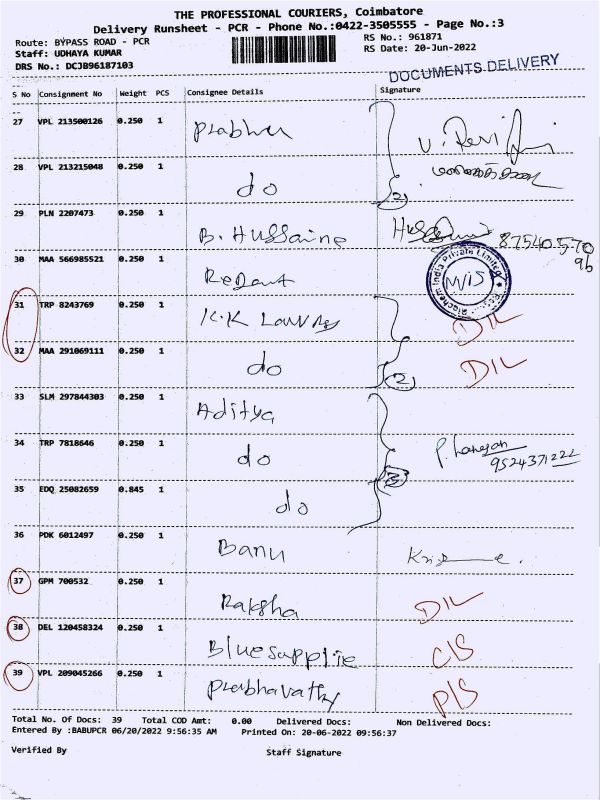 THE PROFESSIONAL COURIERS, Coimbatore
Delivery Runsheet - PCR - Phone No.:0422-3505555 - Page No.:3
Route: BYPASS ROAD - PCR
Staff: UDHAYA KUMAR
DRS No.: DCJB96187103
RS No.: 961871
RS Date: 20-Jun-2022
DOCUMENTS DELIVERY
S No Consignment No Weight PCS Consignee Details Signature
27 VPL 213500126 0.250 1 Prabhu
28 VPL 213215048 0.250 1 do (2)
29 PLN 2207473 0.250 1 B. Hussaine 87540570
96
30 MAA 566985521 0.250 1
India Private Limited
31 TRP 8243769 0.250 1 K.K DIL
32 MAA 291069111 0.250 1 do (2) DIL
33 SLM 297844303 0.250 1 Aditya
34 TRP 7818646 0.250 1 do (3)
9524371222
35 EDQ 25082659 0.845 1 do
36 PDK 6012497 0.250 1 Banu
37 GPM 700532 0.250 1 Raksha DIL
38 DEL 120458324 0.250 1 Bluesupplie CIS
39 VPL 209045266 0.250 1 Prabhavathy PIS
Total No. Of Docs: 39 Total COD Amt: 0.00 Delivered Docs: Non Delivered Docs:
Entered By :BABUPCR 06/20/2022 9:56:35 AM Printed On: 20-06-2022 09:56:37
Verified By Staff Signature